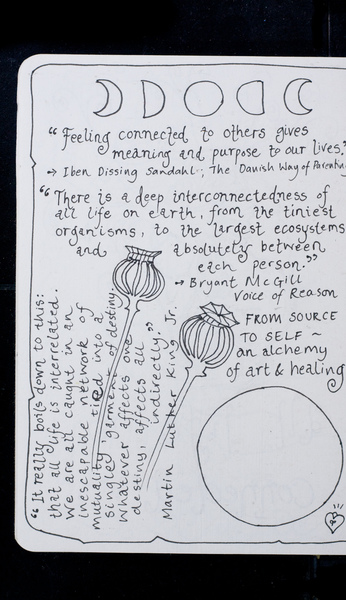 “Feeling connected to others gives
meaning and purpose to our lives.”
→ Iben Dissing Sandahl, The Danish Way of Parenting
“There is a deep interconnectedness of
all life on earth, from the tiniest
organisms, to the largest ecosystems
and absolutely between
each person.”
→ Bryant McGill
Voice of Reason
FROM SOURCE
TO SELF ~
an alchemy
of art & healing
“It really boils down to this:
that all life is interrelated.
We are all caught in an
inescapable network of
mutuality tied into a
single garment of destiny
Whatever affects one
destiny, affects all
indirectly.”
Martin Luther King Jr.